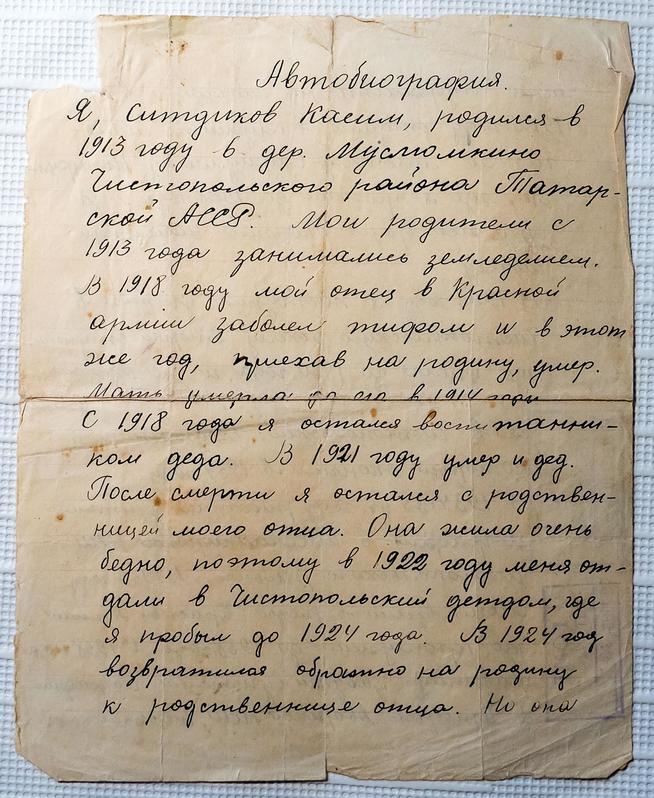 Автобиография.
Я, Ситдиков Касим, родился в
1913 году в дер. Муслюмкино
Чистопольского района Татар-
ской АССР. Мои родители с
1913 года занимались земледелием.
В 1918 году мой отец в Красной
армии заболел тифом и в этот
же год, приехав на родину, умер.
Мать умерла до его в 1914 году
С 1918 года я остался воспитанни-
ком деда. В 1921 году умер и дед.
После смерти я остался с родствен-
ницей моего отца. Она жила очень
бедно, поэтому в 1922 году меня от-
дали в Чистопольский детдом, где
я пробыл до 1924 года. В 1924 год
возвратился обратно на родину
к родственнице отца. Но она